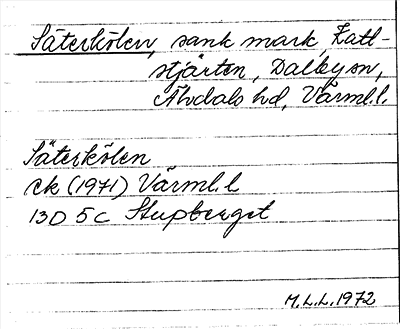 Säterkölen, sank mark, Katt-
stjärten, Dalby sn,
Älvdals hd, Värml. l.
Säterkölen
ek (1971) Värml. l
13D 5c Stupberget
M.L.L. 1972